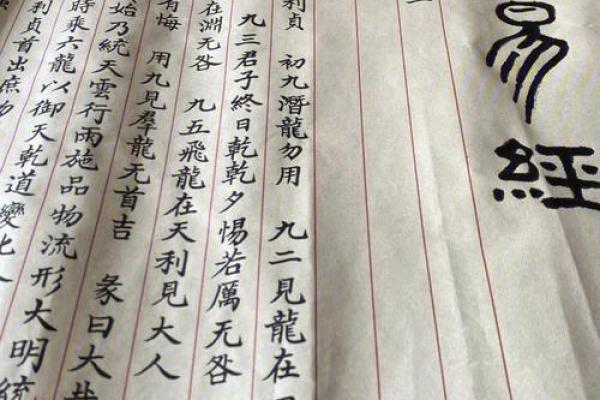 易經
利貞 初九潛龍勿用 九二見龍在
九三君子終日乾乾夕惕若厲无咎
在淵无咎 九五飛龍在天利見大人
有悔 用九見羣龍无首吉 彖曰大哉
始乃統天雲行雨施品物流形大明
時乘六龍以御天乾道變化
利貞首出庶物